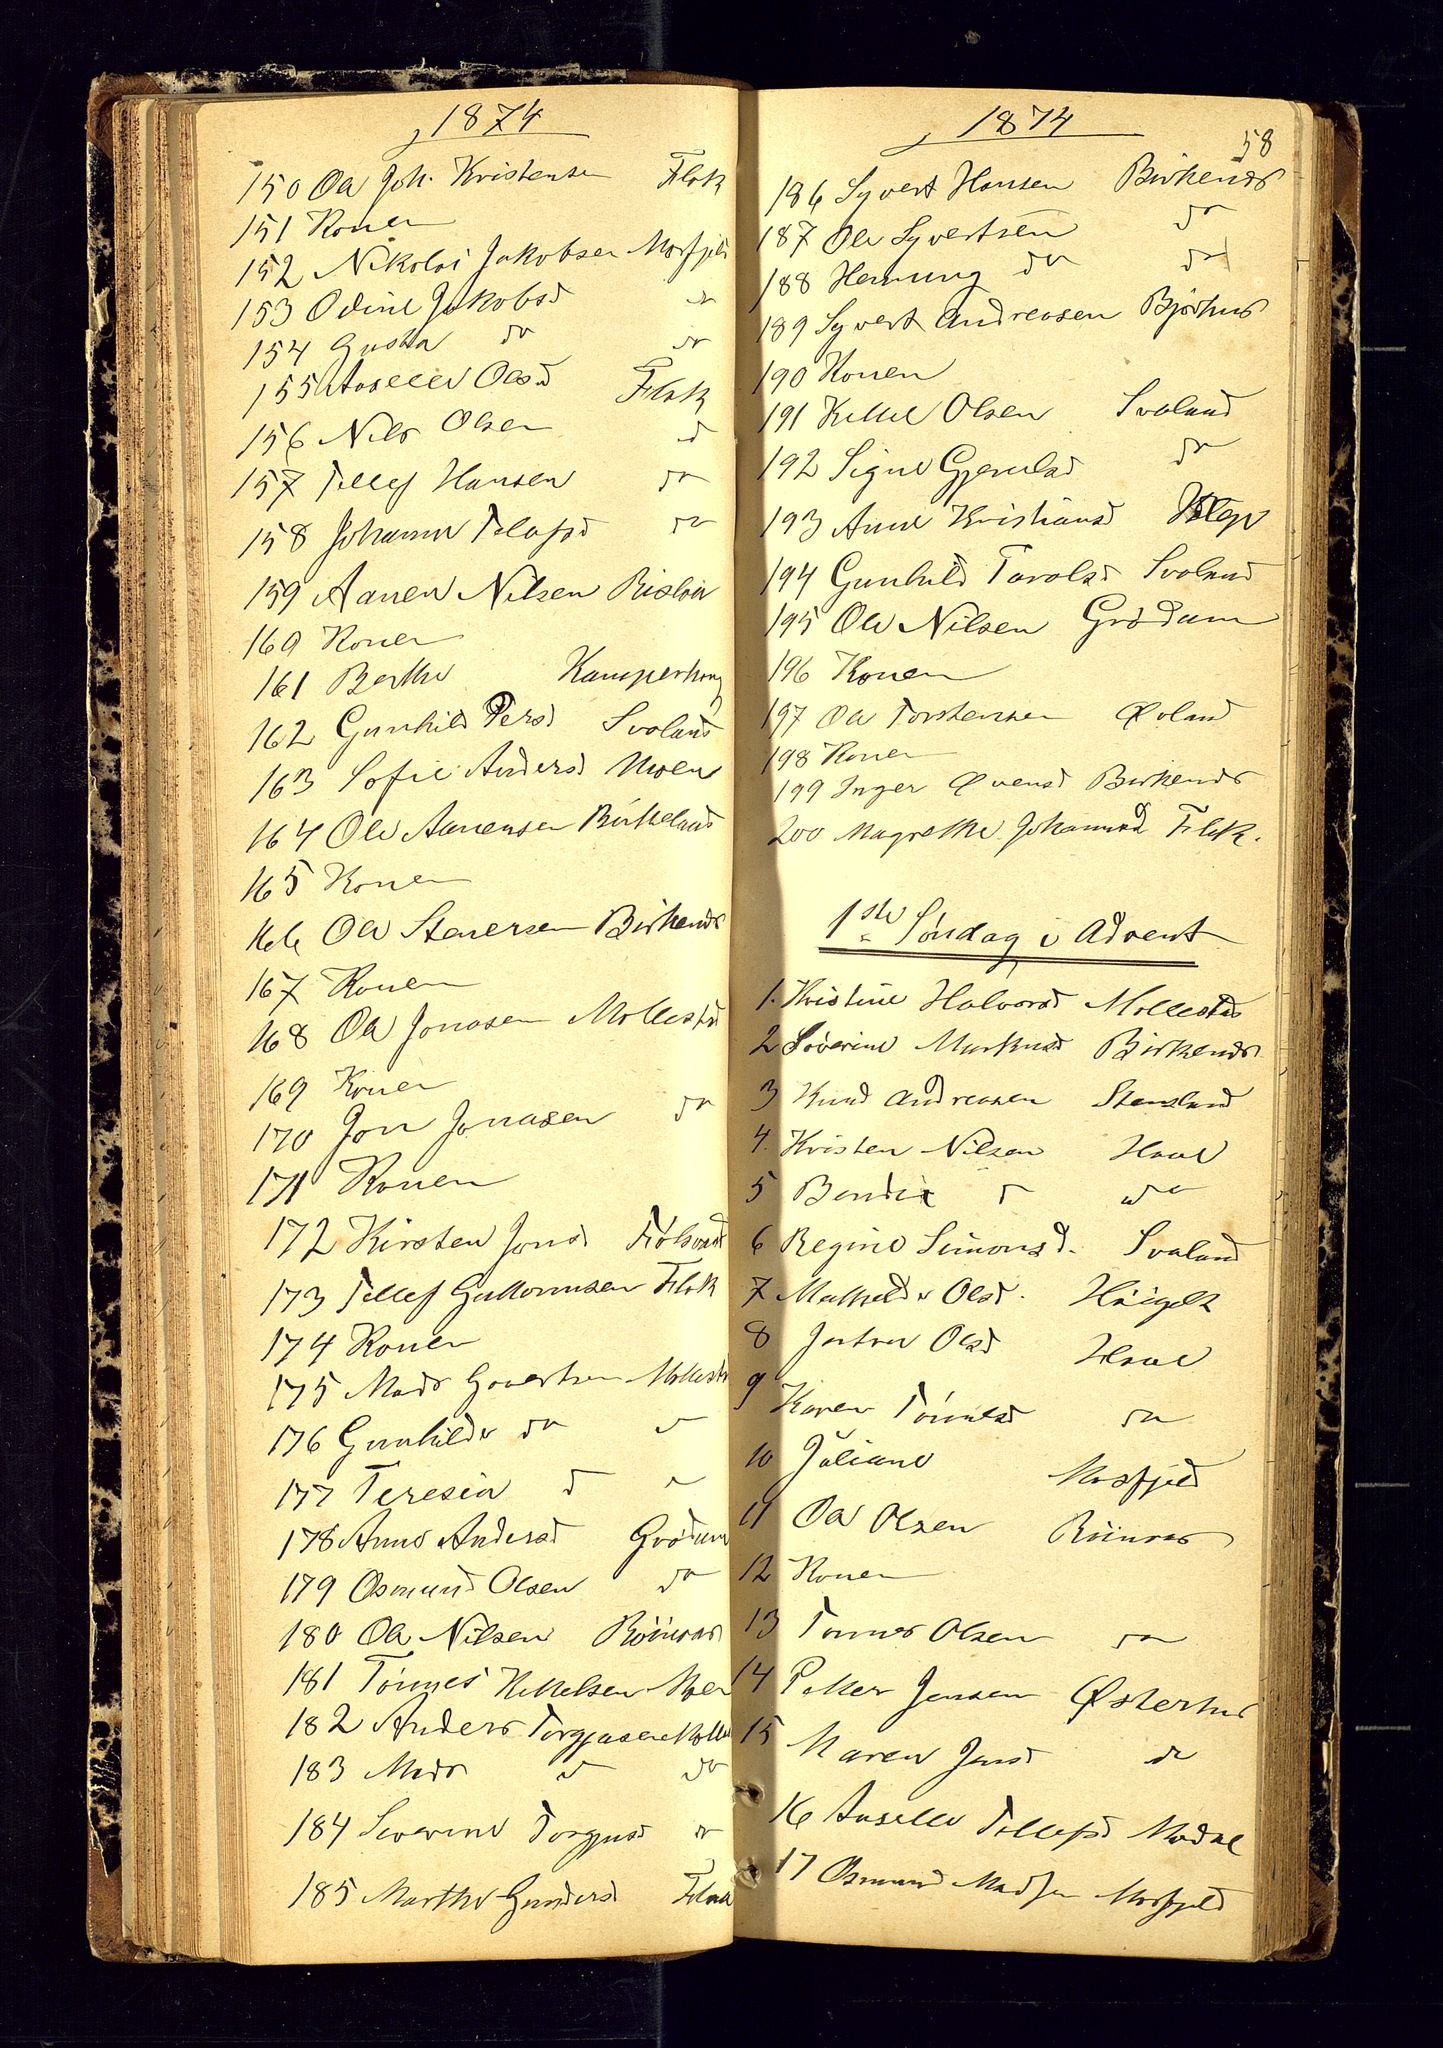 1874
150 Ole Joh. Kristensen Flak
151 Konen
152 Nikolai Jakobsen Mosfjeld
153 Odine Jakobsd do
154 Gusta do do
155 Aaselle Olsd Flak
156 Nils Olsen d
157 Tellef Hansen do
158 Johanne Telefsd do
159 Aanen Nilsen Rislaa
160 Konen
161 Berthe Kamperhoug
162 Gunhild Persd Svaland
163 Sofie Andersd Moen
164 Ole Aanensen Birkeland
165 Konen
166 Ole Stenersen Birkends
167 Konen
168 Ole Jonasen Mollestad
169 Konen
170 Jon Jonasen do
171 Konen
172 Kirsten Jensd
173 Tellef Guttormsen Flak
174 Konen
175 Mads Govertsen Mollestd
176 Gunhilde do
177 Teresia d
178 Anne Andersd Grødum
179 Osmund Olsen do
180 Ole Nilsen Röinaas
181 Tønnes Kittelsen Moen
182 Anders Torgjusen Molles
183 Mads d do
184 Severine Torgjusd do
185 Marthe Gundersd Flak
1874
58
186 Syvert Hansen Birkends
187 Ole Syvertsen do
188 Henning do do
189 Syvert Andreasen Bjorhus
190 Konen
191 Kittel Olsen Svaland
192 Signe Gjerulsd do
193 Anne Kristiansd
194 Gunhild Tarolsd Svaland
195 Ole Nilsen Grødum
196 Konen
197 Ole Torstensen Øvland
198 Konen
199 Inger Øvensd Birkends
200 Magrethe Johannsd Flak.
1ste Søndag i Advent
1. Kristine Halvorsd Mollestad
2 Søverine Markusd Birkends
3 Knud Andreasen Stensland
4. Kristen Nilsen Haave
5 Bendix d do
6 Regine Simonsd. Svaland
7 Mathilde Olsd. Höigilt
8 Olsd Haave
9 Karen Tønnesd do
10 Juliane Mosfjeld
11 Ole Olsen Röinaas
12 Konen
13 Tønnes Olsen do
14 Petter Jensen Østerhus
15 Maren Jensd do
16 Aaselle Tellefsd Modal
17 Osmund Madsen Mosfjeld